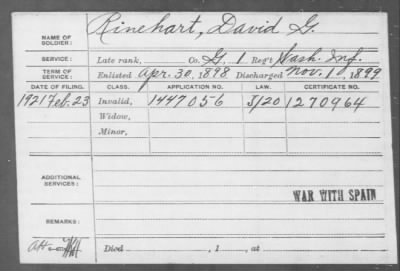 NAME OF SOLDIER: Rinehart, David G.
SERVICE: Late rank, Co. G, 1 Reg't Wash. Inf.
TERM OF SERVICE: Enlisted Apr. 30, 1898 Discharged Nov. 1, 1899
DATE OF FILING. CLASS. APPLICATION NO. LAW. CERTIFICATE NO.
1921 Feb. 23 Invalid, 1447056 5/20 1270964
Widow,
Minor,
ADDITIONAL SERVICES:
WAR WITH SPAIN
REMARKS:
Died , 1 , at